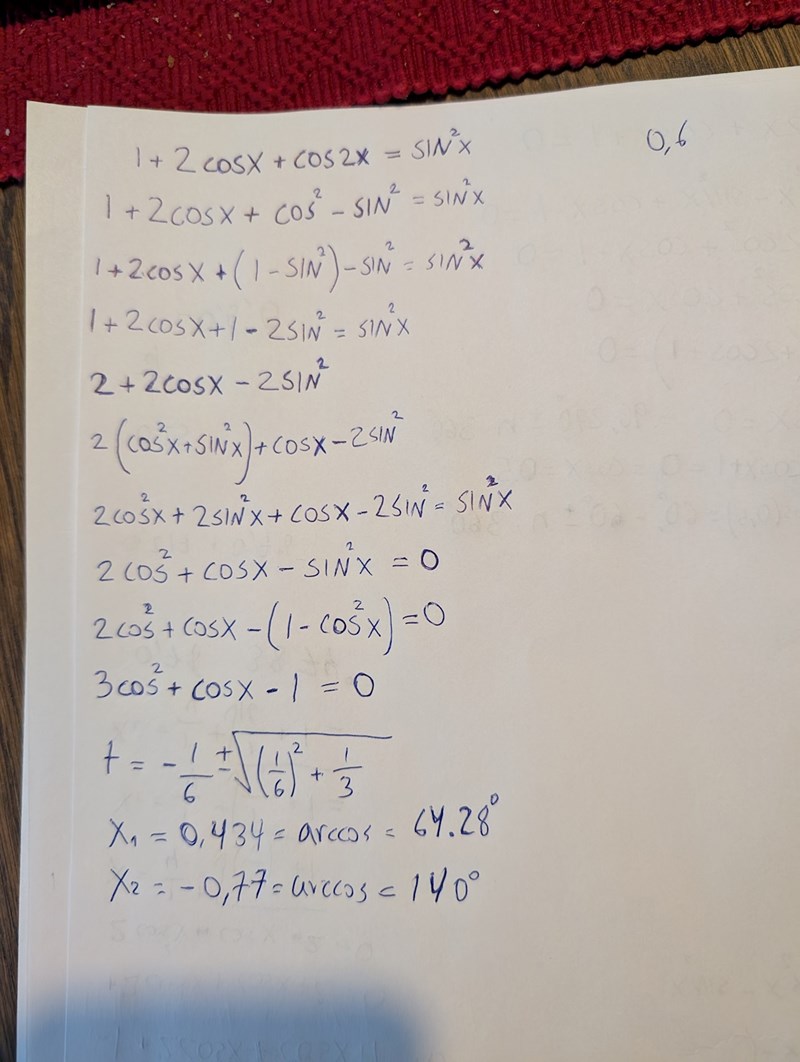 0,6
1 + 2cosx + cos2x = sin²x
1 + 2cosx + cos² - sin² = sin²x
1 + 2cosx + (1 - sin²) - sin² = sin²x
1 + 2cosx + 1 - 2sin² = sin²x
2 + 2cosx - 2sin²
2(cos²x + sin²x) + cosx - 2sin²
2cos²x + 2sin²x + cosx - 2sin² = sin²x
2cos² + cosx - sin²x = 0
2cos² + cosx - (1 - cos²x) = 0
3cos² + cosx - 1 = 0
t = -1/6 ± √((1/6)² + 1/3)
x₁ = 0,434 = arccos = 64.28°
x₂ = -0,77 = arccos = 140°